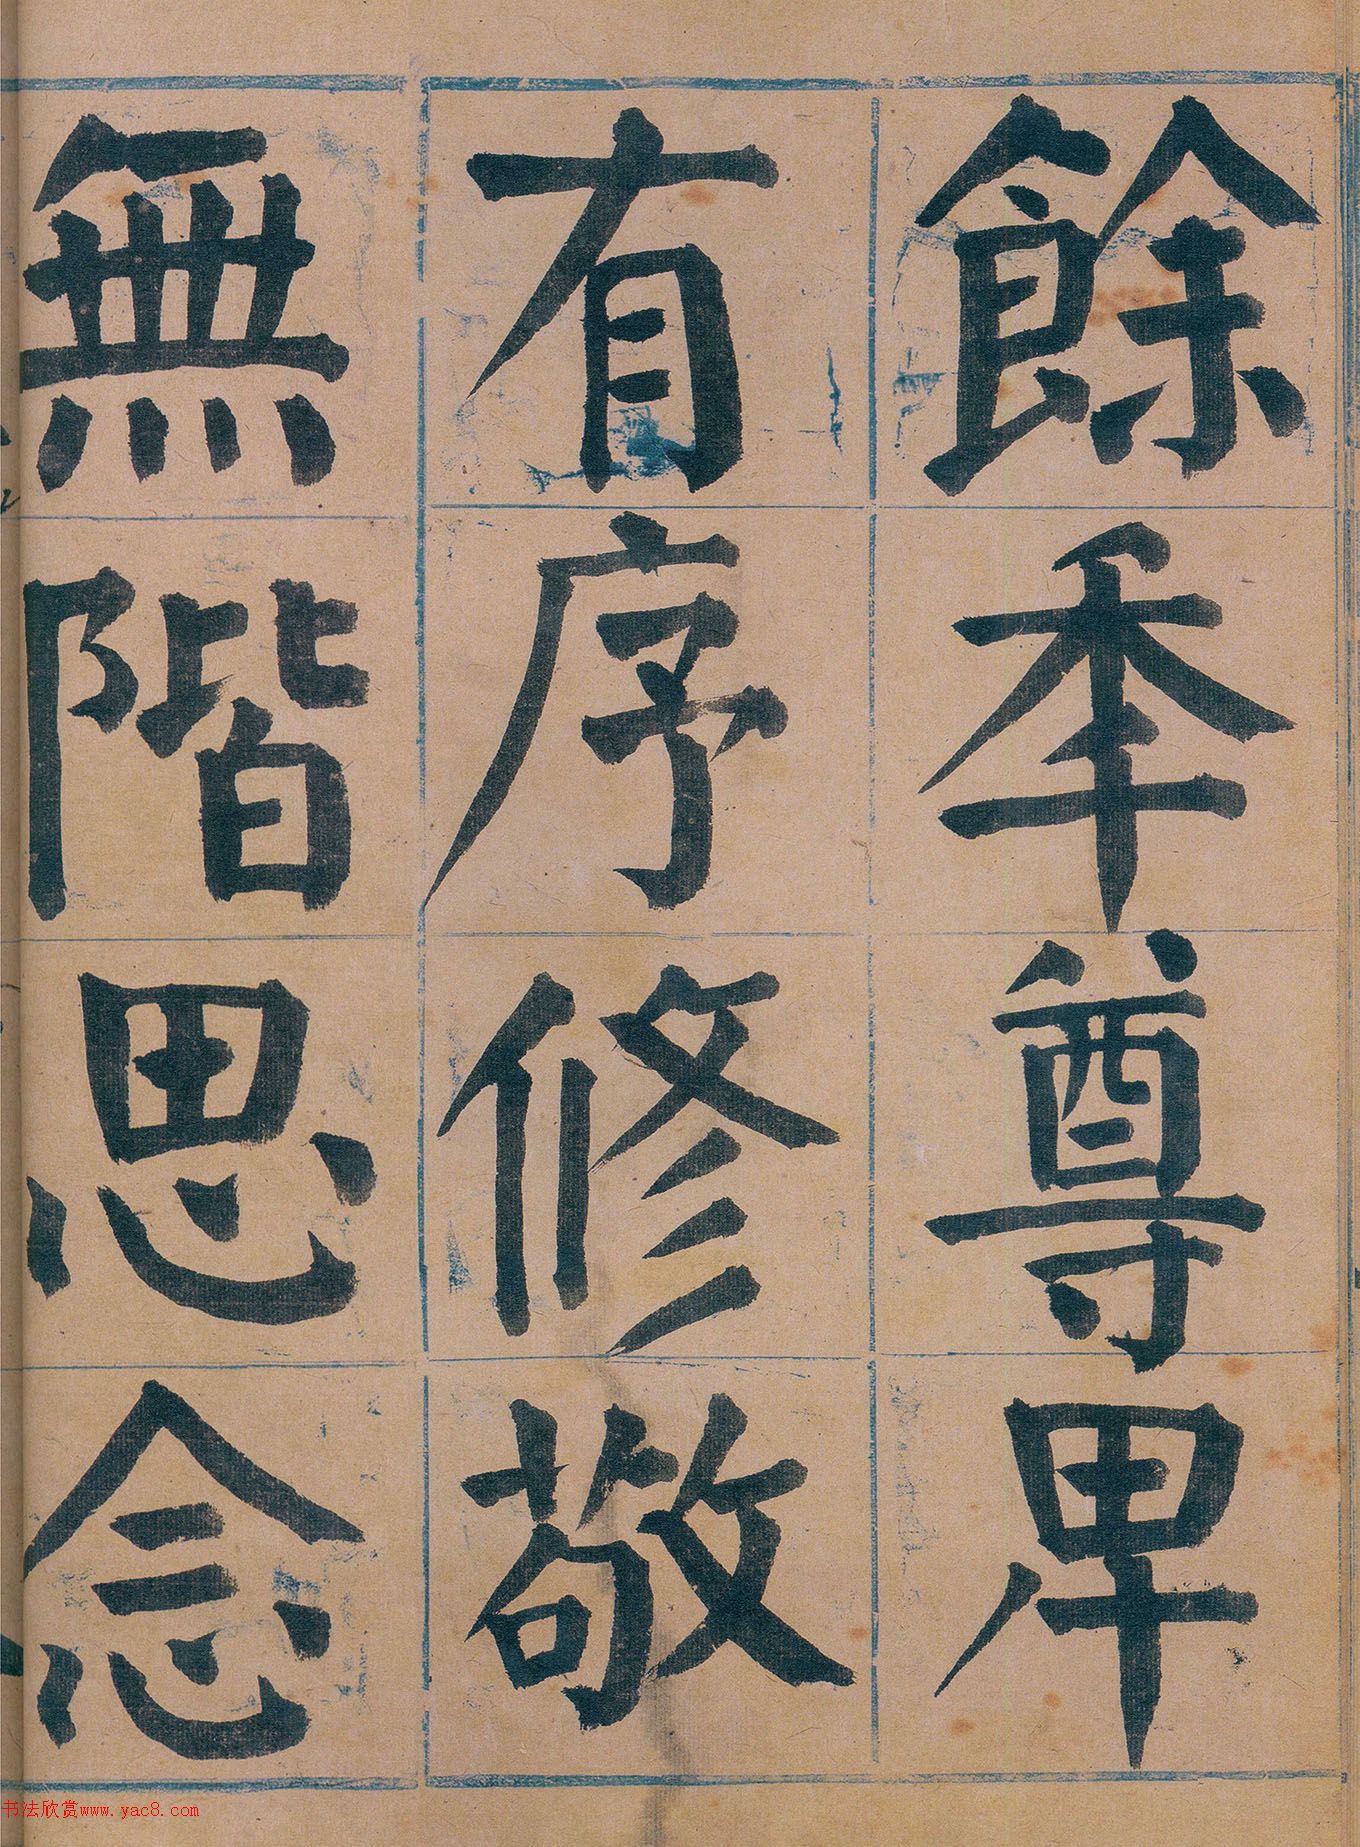 餘秊尊卑
有序修敬
無階思念
书法欣赏www.yac8.com